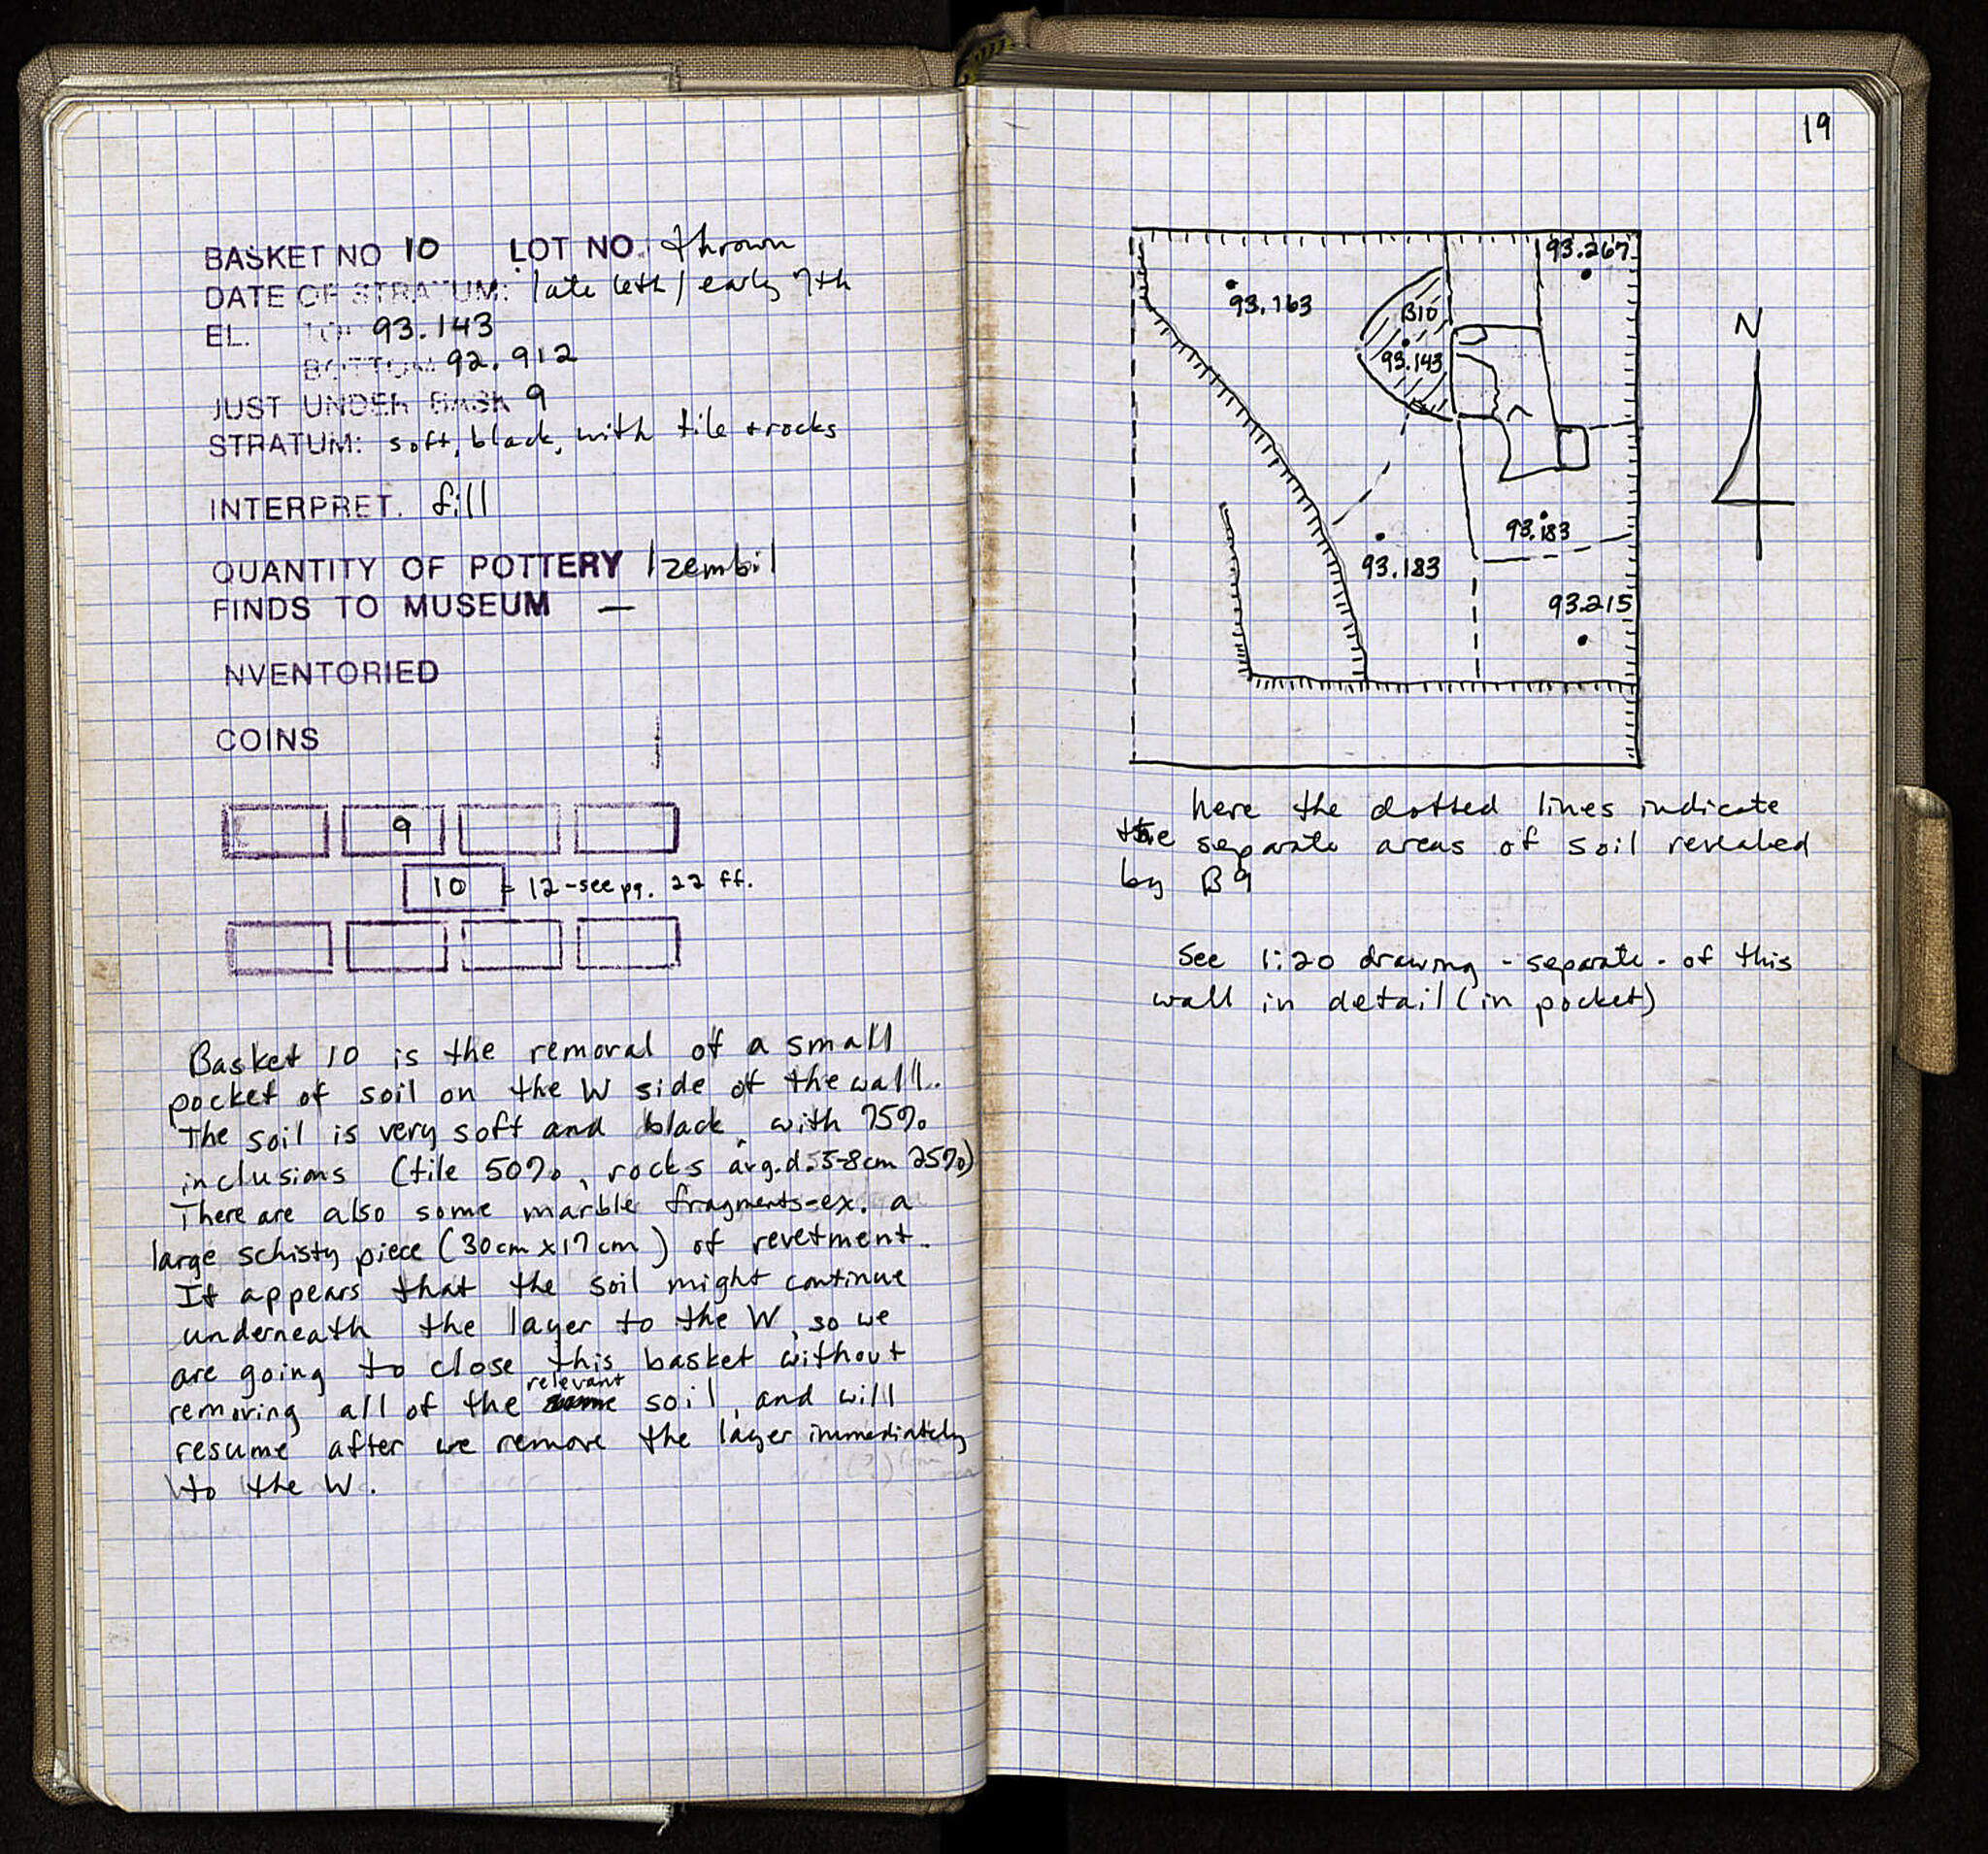 BASKET NO 10 LOT NO. thrown
DATE OF STRATUM: late 6th / early 7th
EL. TOP 93.143
BOTTOM 92.912
JUST UNDER BASK 9
STRATUM: soft, black, with tile + rocks
INTERPRET. fill
QUANTITY OF POTTERY 1 zembil
FINDS TO MUSEUM —
NVENTORIED
COINS
9
10 = 12 - see pg. 22 ff.
Basket 10 is the removal of a small
pocket of soil on the W side of the wall.
The soil is very soft and black, with 75%
inclusions (tile 50%, rocks avg.d. 5-8cm 25%)
There are also some marble fragments-ex. a
large schisty piece (30cm x 17cm) of revetment.
It appears that the soil might continue
underneath the layer to the W, so we
are going to close this basket without
relevant
removing all of the same soil, and will
resume after we remove the layer immediately
to the W.
19
93.267
93.163
B10
93.143
N
93.183
93.183
93.215
here the dotted lines indicate
the separate areas of soil revealed
by B9
See 1:20 drawing - separate - of this
wall in detail (in pocket)